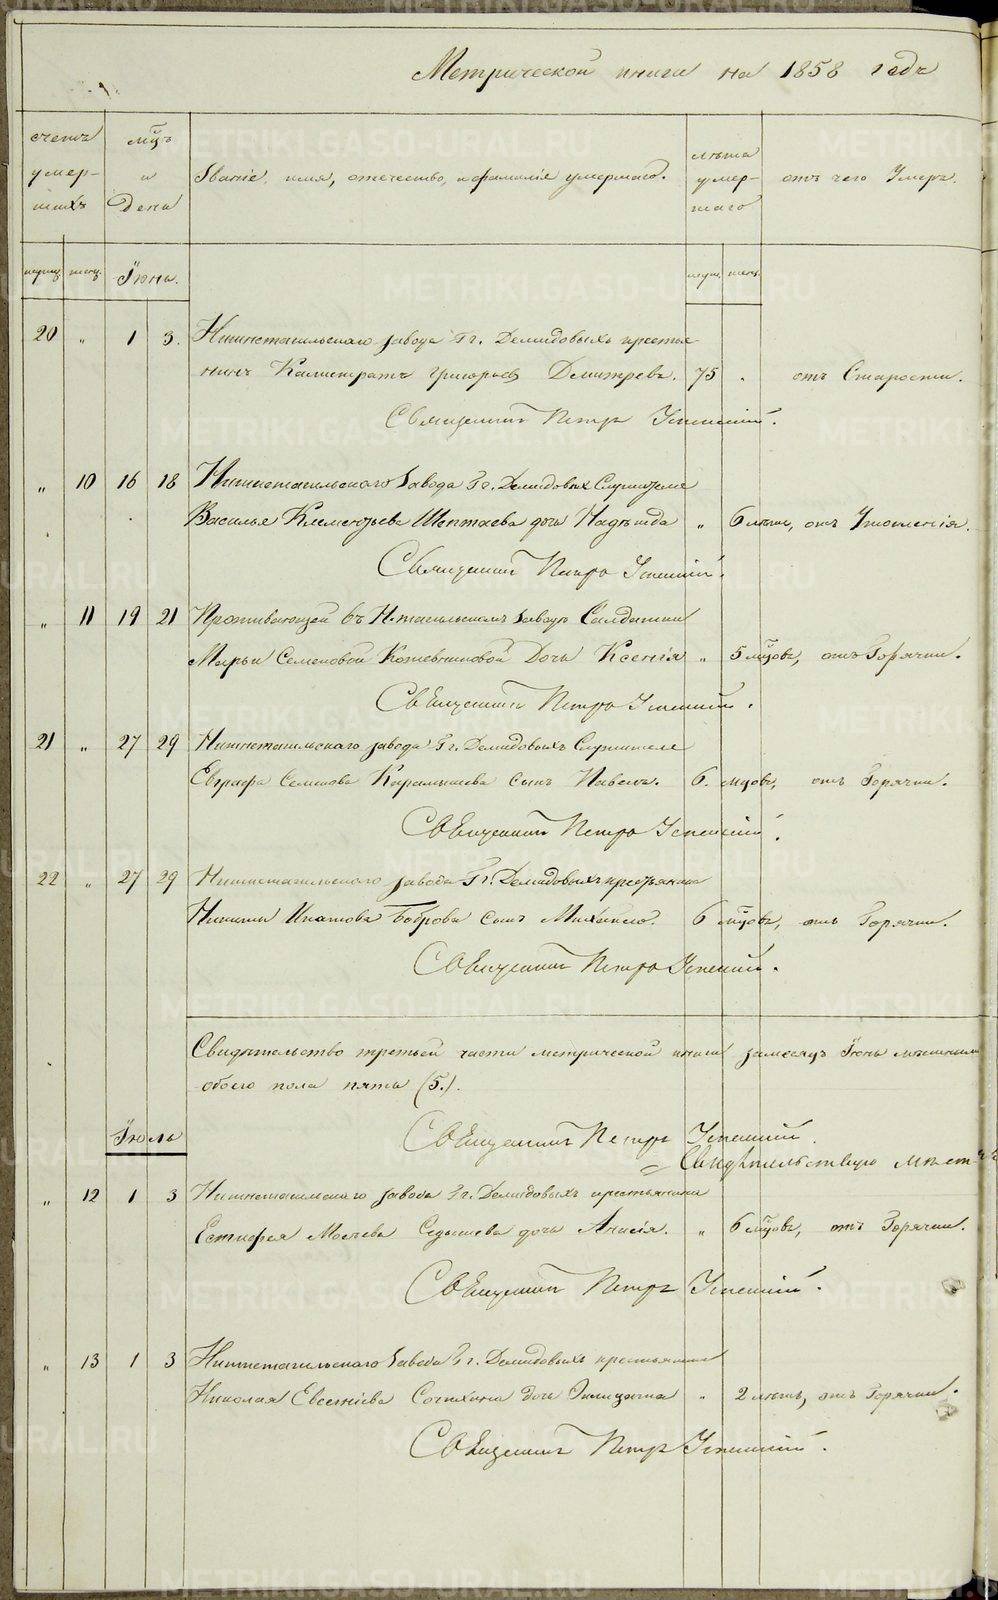 Метрической книги на 1858 годъ
счетъ умер-шихъ
мцъ и День
Званіе, имя, отечество, и фамилія умершаго.
лѣта умер-шаго
отъ чего Умеръ.
мущ. жен.
Іюнь.
мущ. жен.
20 „ 1 3. Нижнетагильскаго завода Гг. Демидовыхъ крестья
нинъ Калистратъ Григорьев Дмитревъ. 75 „ отъ Старости.
Священникъ Петръ Успенскій.
„ 10 16 18 Нижнетагильскаго Завода Гг. Демидовыхъ Служителя
Василья Клементьева Шептаева дочь Надѣжда „ 6 лѣтъ, отъ Утопленія.
Священникъ Петръ Успенскій.
„ 11 19 21 Проживающей въ Н.тагильскомъ Заводѣ Салдатки
Марьи Семеновой Кожевниковой Дочь Ксенія „ 5 мцовъ, отъ Горячки.
Священникъ Петръ Успенскій.
21 „ 27 29 Нижнетагильскаго завода Гг. Демидовыхъ Служителя
Евграфа Семенова Карамышева сынъ Павелъ. 6. мцовъ, отъ Горячки.
Священникъ Петръ Успенскій.
22 „ 27 29 Нижнетагильскаго завода Гг. Демидовыхъ крестьянина
Никиты Игнатова Боброва сынъ Михаилъ. 6 мцовъ, отъ Горячки.
Священникъ Петръ Успенскій.
Свидѣтельство третьей части метрической книги за месяцъ Іюнь
обоего пола пять (5.).
Священникъ Петръ Успенскій.
Свидѣтельствую
Іюль
„ 12 1 3 Нижнетагильскаго завода Гг. Демидовыхъ крестьянина
Естифея Моисеева дочь Анисія. „ 6 мцовъ, отъ Горячки.
Священникъ Петръ Успенскій.
„ 13 1 3 Нижнетагильскаго Завода Гг. Демидовыхъ крестьянина
Николая Евсеніева дочь „ 2 лѣтъ, отъ Горячки.
Священникъ Петръ Успенскій.
METRIKI.GASO-URAL.RU